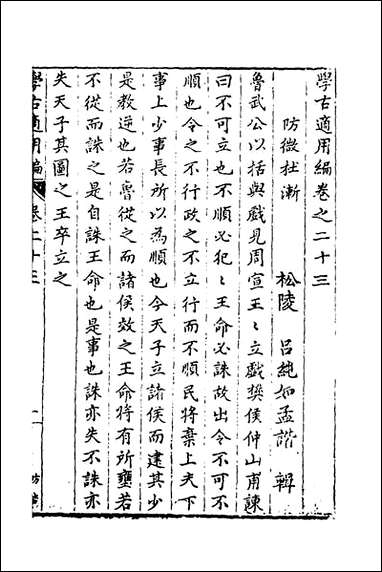 學古適用編卷之二十三
防微杜漸
松陵 呂純如孟諧 輯
魯武公以括與戲見周宣王〻立戲樊侯仲山甫諫
曰不可立也不順必犯〻王命必誅故出令不可不
順也令之不行政之不立行而不順民將棄上夫下
事上少事長所以為順也今天子立諸侯而建其少
是教逆也若魯從之而諸侯效之王命將有所壅若
不從而誅之是自誅王命也是事也誅亦失不誅亦
失天子其圖之王卒立之
學古適用編 卷二十三 一